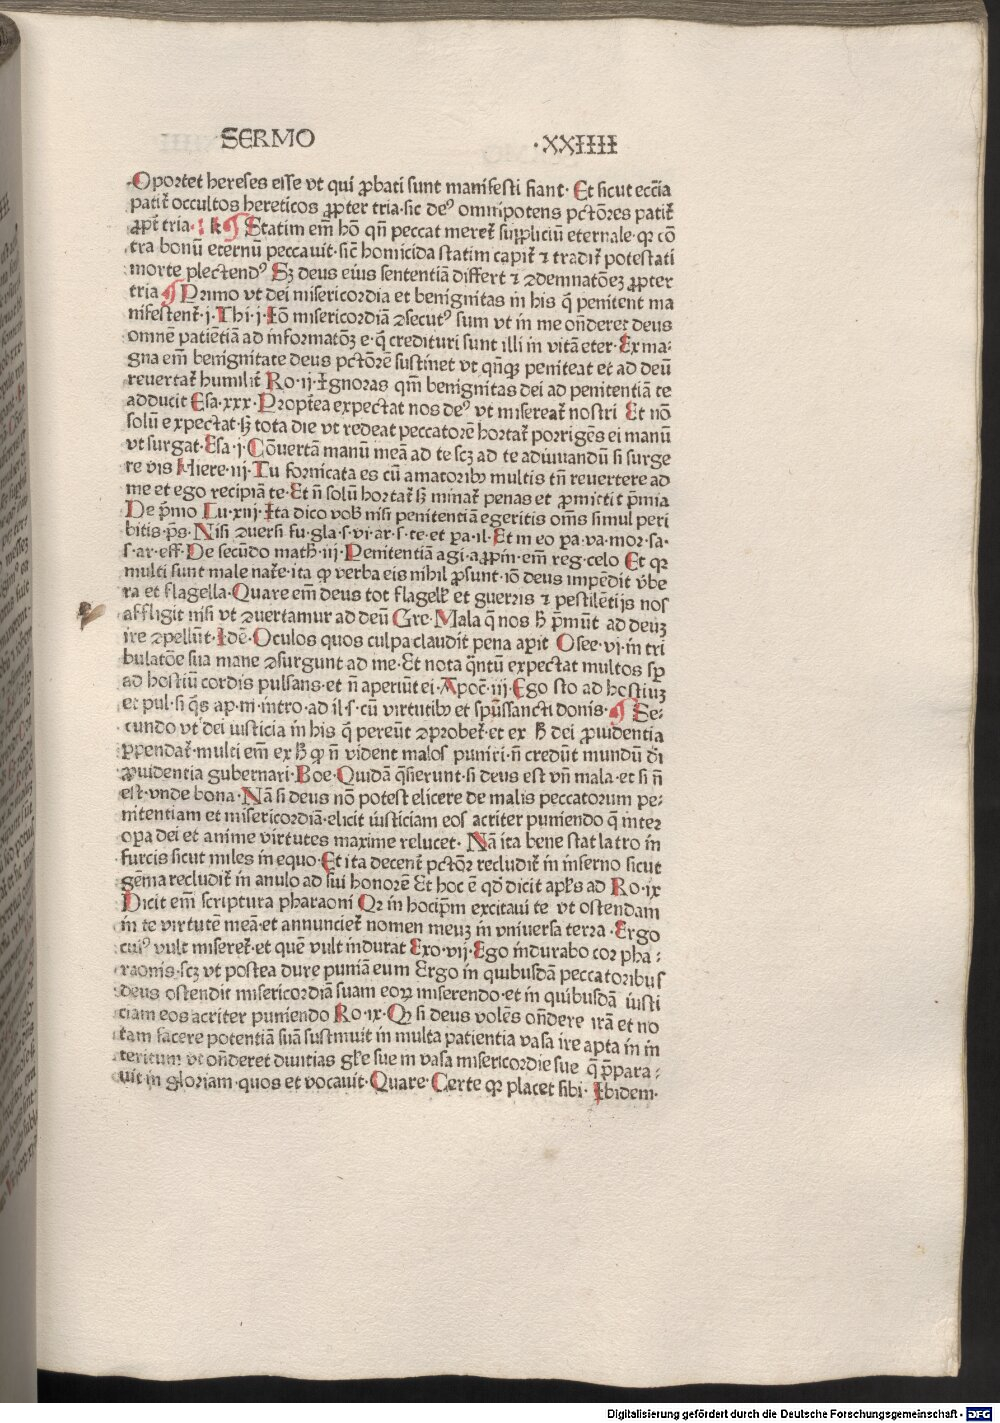 SERMO ·XXIIII
Oportet hereses esse vt qui ꝓbati sunt manifesti fiant· Et sicut eccīa
patit᷑ occultos hereticos ꝓpter tria·sic deꝰ omnipotens pctōres patit᷑
ꝓpt᷑ tria· k ¶ Statim em̄ hō qn̄ peccat meret᷑ suppliciū eternale·qꝛ cō
tra bonū eternū peccauit·sic̄ homicida statim capit᷑ ⁊ tradit᷑ potestati
morte plectendꝰ Sꝫ deus eius sententiā differt ⁊ ꝯdemnatōeꝫ ꝓpter
tria ¶ Primo vt dei misericordia et benignitas in his q̄ penitent ma
nifestent᷑·j·Thi·j·Iō misericordiā ꝯsecutꝰ sum vt in me on̄deret deus
omnē patiētiā ad informatōꝫ e·q̄ credituri sunt illi in vitā eter·Ex ma:
gna em̄ benignitate deus pctōrē sustinet vt qn̄qꝫ peniteat et ad deū
reuertat᷑ humilit᷑ Ro·ij·Ignoras qm̄ benignitas dei ad penitentiā te
adducit Esa·xxx·Propt᷑ea expectat nos deꝰ vt misereat᷑ nostri Et nō
solū expectat·sꝫ tota die vt redeat peccatorē hortat᷑ porrigēs ei manū
vt surgat·Esa·j·Cōuertā manū meā ad te scꝫ ad te adiuuandū si surge
re vis Hiere·iij·Tu fornicata es cū amatoribꝫ multis tn̄ reuertere ad
me et ego recipiā te·Et n̄ solū hortat᷑ sꝫ minat᷑ penas et ꝓmittit p̄mia
De p̄mo Lu·xiij·Ita dico vob̄ nisi penitentiā egeritis om̄s simul peri
bitis·p̄s·Nisi ꝯuersi fu·gla·s·vi·ar·s·te·et pa·il·Et in eo pa·va·mor·sa·
s·ar·eff·De secūdo math̄·iij·Penitentiā agi·aꝓpin̄·em̄ reg·celo Et qꝛ
multi sunt male nat᷑e·ita ꝙ verba eis nihil ꝓsunt·iō deus impēdit v̄be
ra et flagella·Quare em̄ deus tot flagell᷑ et guerris ⁊ pestilētijs nos
affligit nisi vt ꝯuertamur ad deū Gre·Mala q̄ nos h̄ p̄mūt ad deuꝫ
ire ꝯpellūt·Idē·Oculos quos culpa claudit pena apit Osee·vi·in tri
bulatōe sua mane ꝯsurgunt ad me·Et nota q̄ntū expectat multos sp̄
ad hostiū cordis pulsans·et n̄ aperiūt ei·Apoc̄·iij·Ego sto ad hostiuꝫ
et pul·si q̄s ap·m̄·intro·ad il·s·cū virtutibꝫ et spūssancti donis· ¶ Se-
cundo vt dei iusticia in his q̄ pereūt ꝯprobet᷑·et ex h̄ dei ꝓuidentia
ꝑpendat᷑·multi em̄ ex h̄ ꝙ n̄ vident malos puniri·n̄ credūt mundū d̄i
ꝓuidentia gubernari·Boe·Quidā q̄sierunt·si deus est vn̄ mala·et si n̄
est·vnde bona·Nā si deus nō potest elicere de malis peccatorum pe-
nitentiam et misericordiā·elicit iusticiam eos acriter puniendo q̄ inter
opa dei et anime virtutes maxime relucet· Nā ita bene stat latro in
furcis sicut miles in equo·Et ita decent᷑ pctōr recludit᷑ in inferno sicut
gēma recludit᷑ in anulo ad sui honorē Et hoc ē qd̄ dicit apl᷑s ad Ro·ix
Dicit em̄ scriptura pharaoni Qꝛ in hocip̄m excitaui te vt ostendam
in te virtutē meā·et annunciet᷑ nomen meuꝫ in vniuersa terra·Ergo
cuiꝰ vult miseret᷑·et quē vult indurat Exo·vij·Ego indurabo cor pha:
raonis·scꝫ vt postea dure puniā eum Ergo in quibusdā peccatoribus
deus ostendit misericordiā suam eoꝝ miserendo·et in quibusdā iusti
ciam eos acriter puniendo Ro·ix·Qꝫ si deus volēs on̄dere irā et no
tam facere potentiā suā sustinuit in multa patientia vasa ire apta in in
teritum vt on̄deret diuitias gl᷑e sue in vasa misericordie sue q̄ p̄para:
uit in gloriam·quos et vocauit·Quare·Certe qꝛ placet sibi·Ibidem·
Digitalisierung gefördert durch die Deutsche Forschungsgemeinschaft - DFG